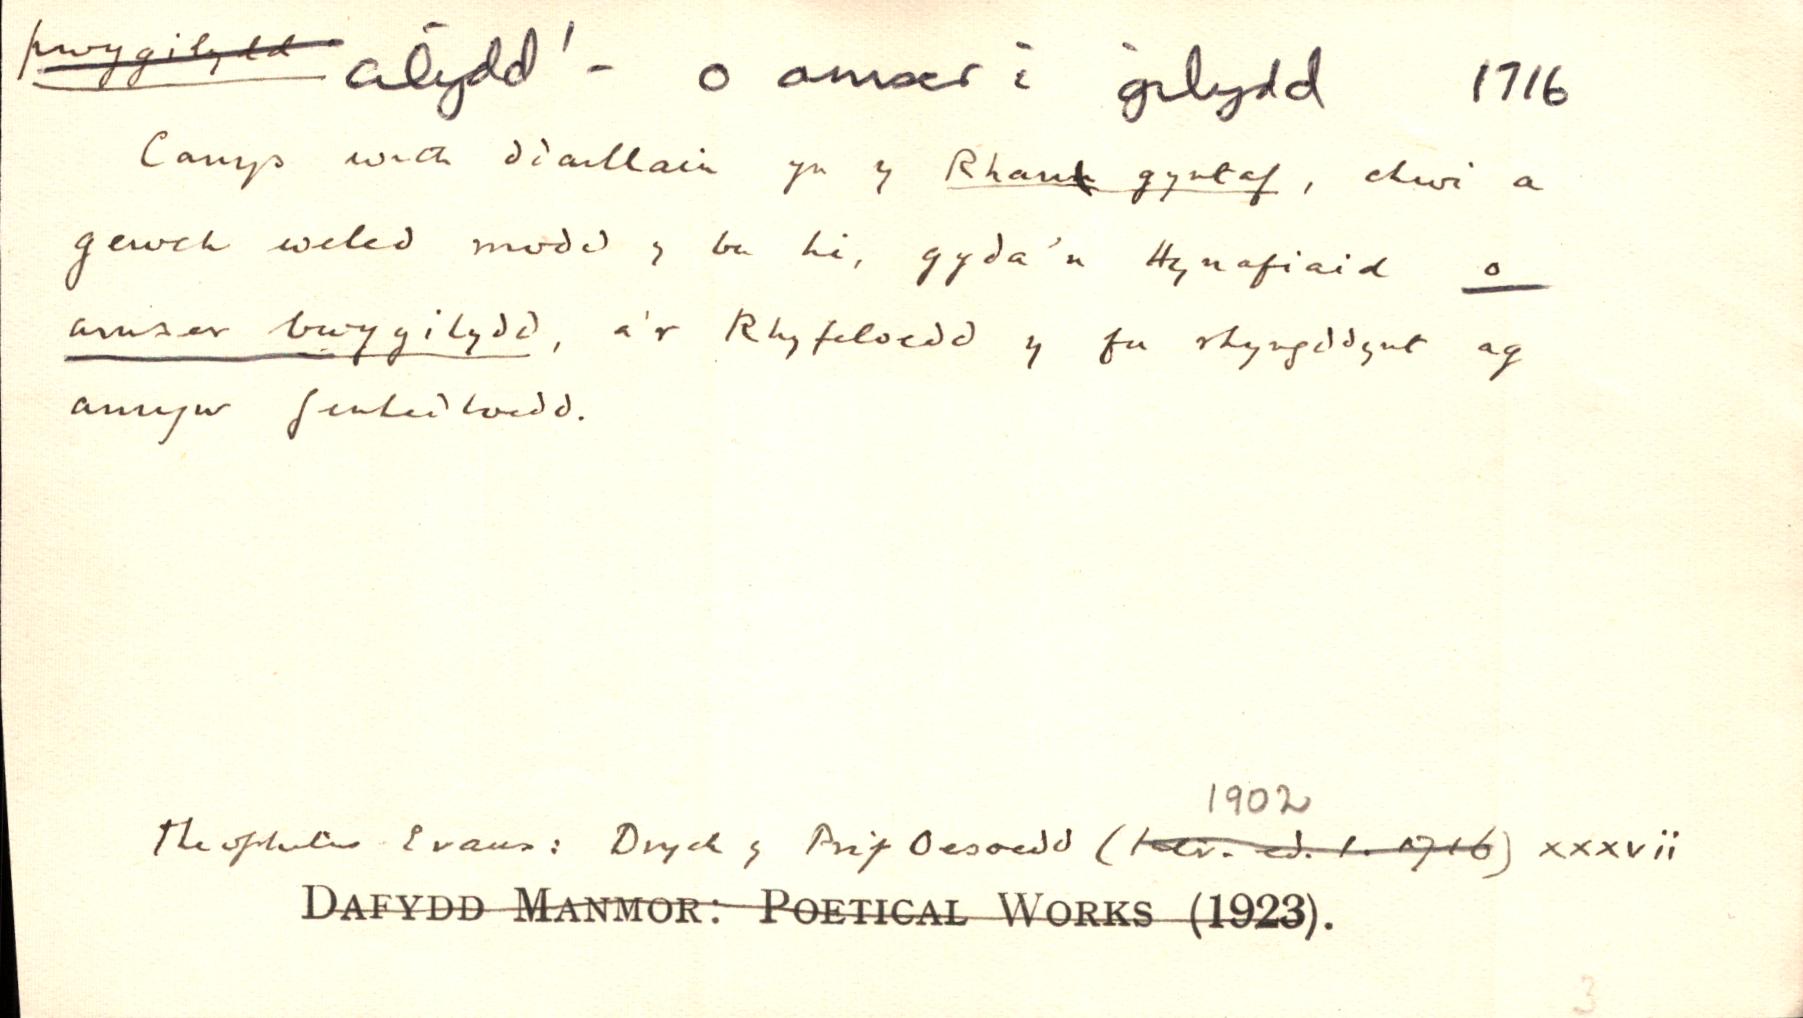 pwygilydd cilydd¹ - o amser i gilydd 1716
Canys wrth ddarllain yn y Rhann gyntaf, chwi a
gewch weled modd y bu hi, gyda'n Hynafiaid o
amser bwygilydd, a'r Rhyfeloedd y fu rhyngddynt ag
amryw Genhedloedd.
1902
Theophilus Evans: Drych y Prif Oesoedd ( ed. 1. 1716) xxxvii
DAFYDD MANMOR: POETICAL WORKS (1923).
3